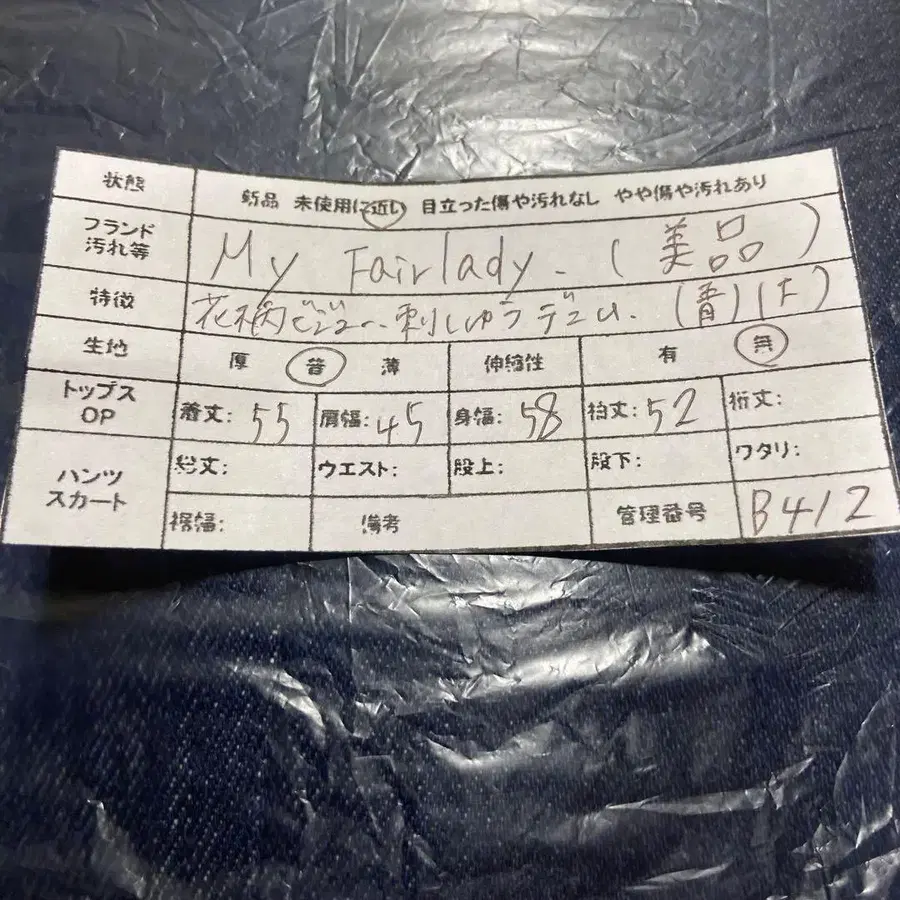 状態 新品 未使用に近い 目立った傷や汚れなし やや傷や汚れあり
ブランド 汚れ等 My Fairlady. (美品)
特徴 花柄ビジュー、刺しゅうデニム. (青) (大)
生地 厚 普 薄 伸縮性 有 無
トップス OP 着丈: 55 肩幅: 45 身幅: 58 袖丈: 52 裄丈:
パンツ スカート 総丈: ウエスト: 股上: 股下: ワタリ:
裾幅: 備考 管理番号 B412